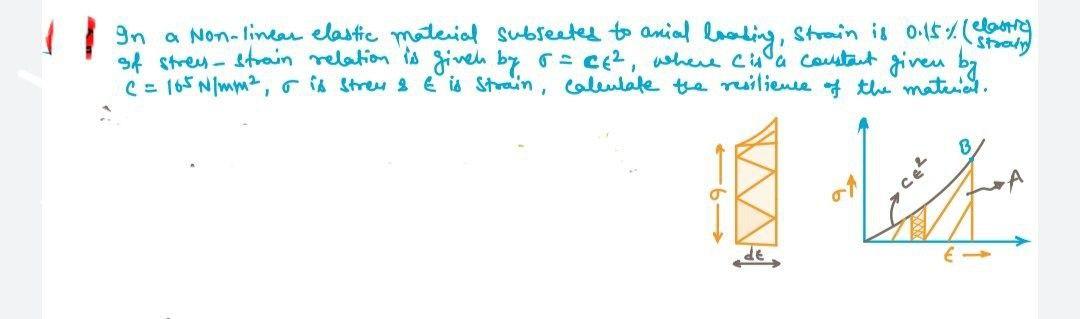 In a Non-linear elastic material subseeted to axial loading, Strain is 0.15% (elastic strain)
If stress-strain relation is given by σ = Cϵ², where C is a constant given by
C = 10⁵ N/mm², σ is stress & ϵ is strain, calculate the resilience of the material.
σ
dϵ
σ↑
Cϵ²
B
A
ϵ →